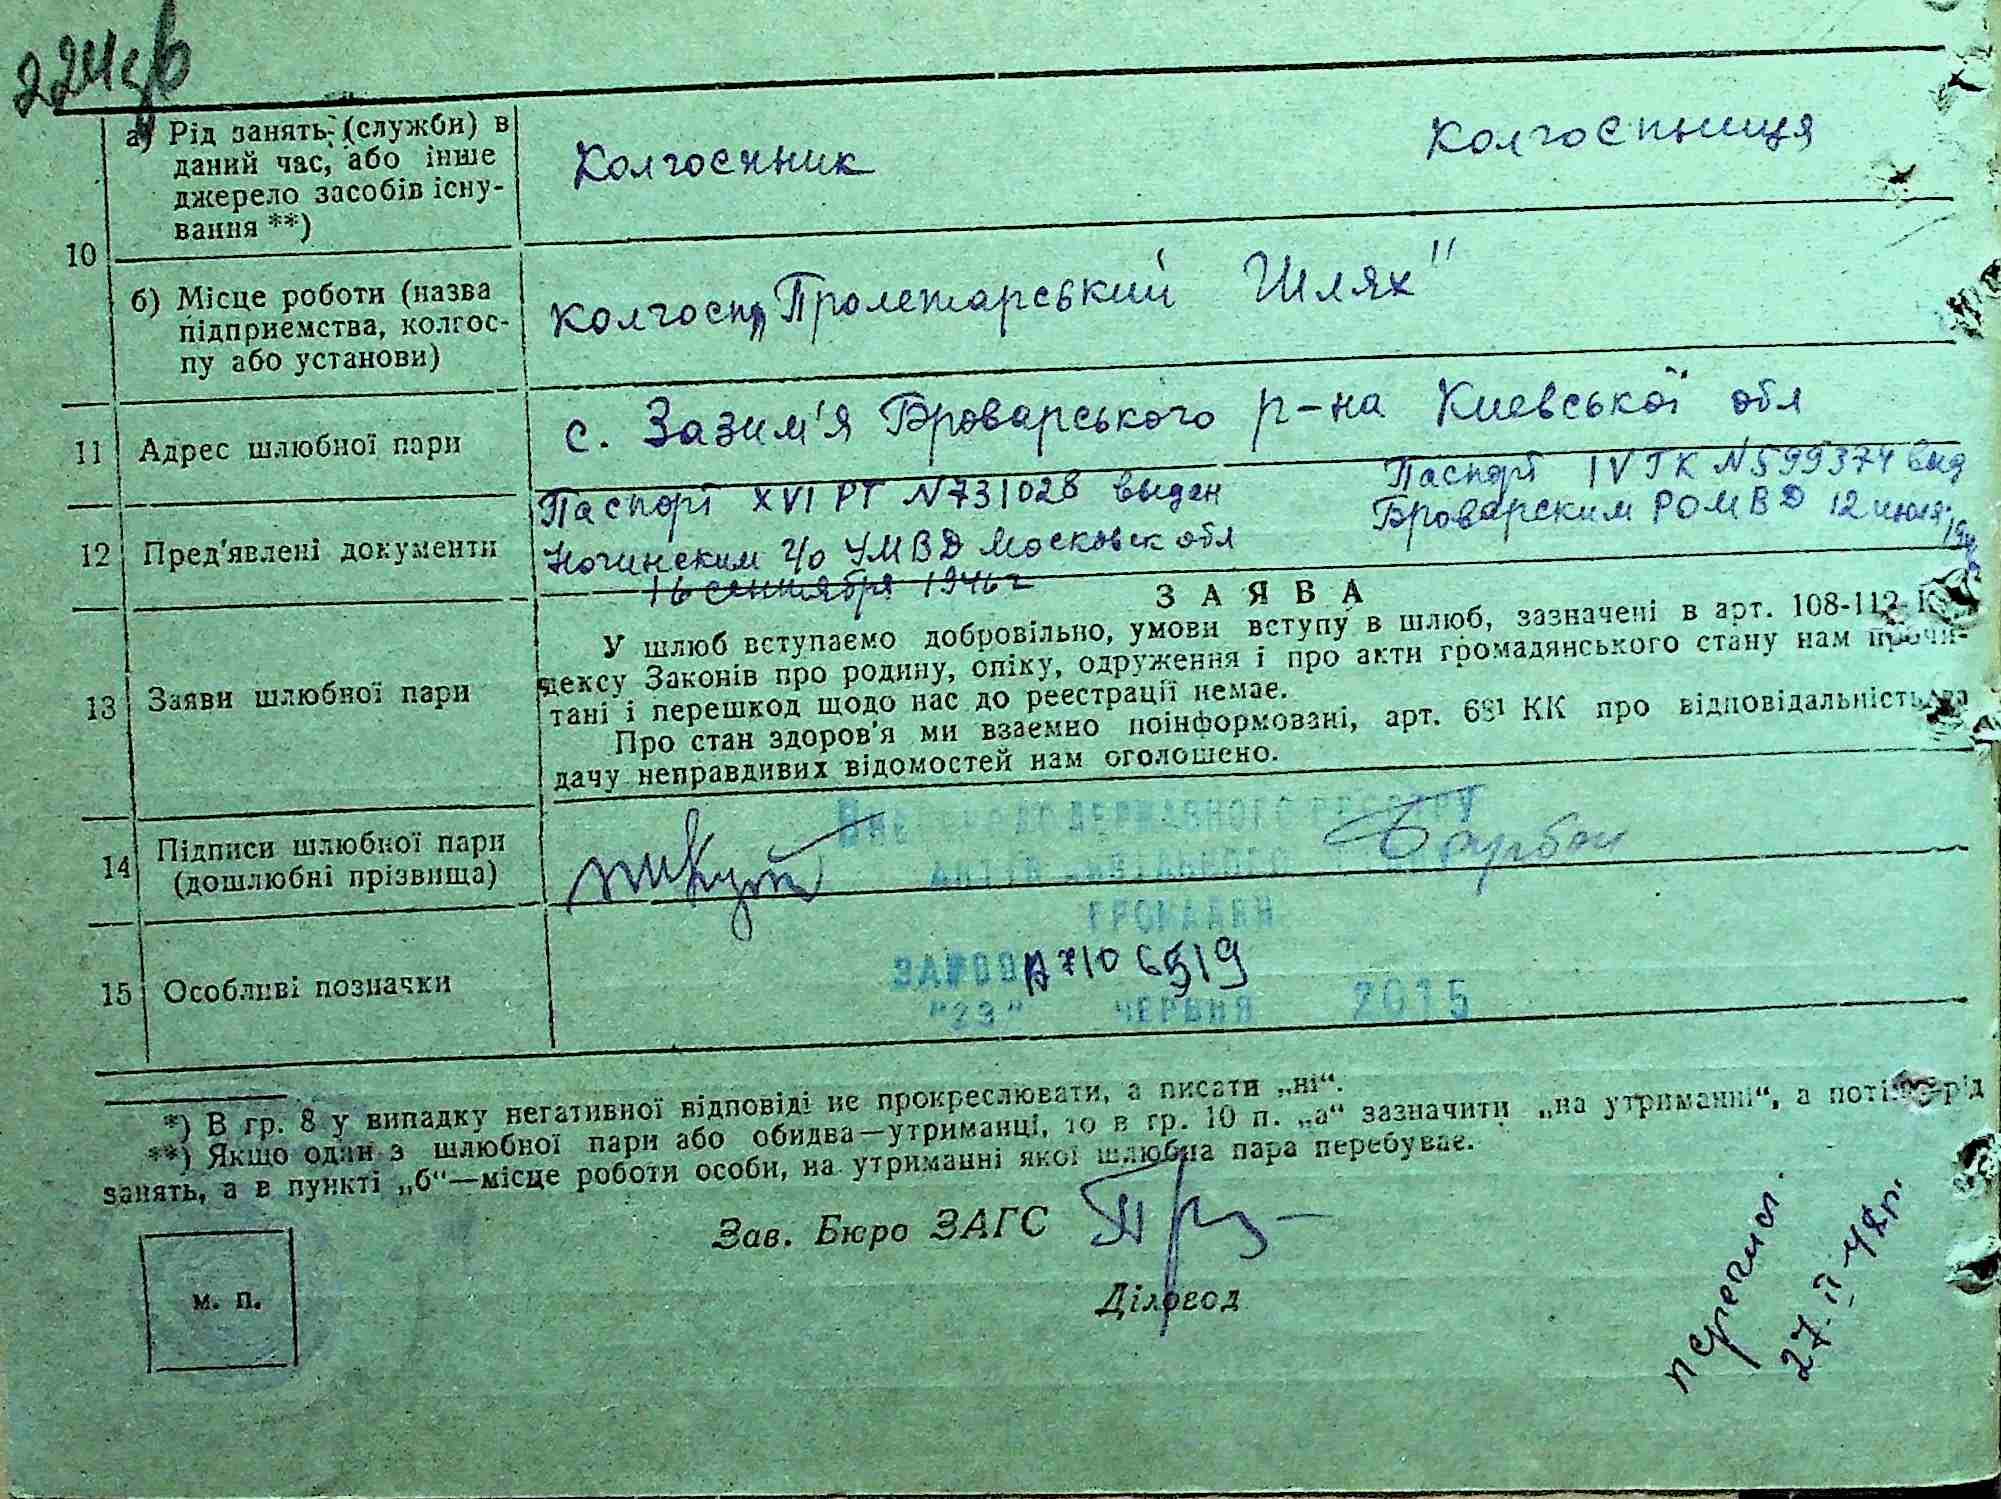 224зв
а) Рід занять (служби) в
даний час, або інше
джерело засобів існу-
вання **)
Колгоспник
Колгоспниця
10
б) Місце роботи (назва
підприємства, колгос-
пу або установи)
колгосп „Пролетарський Шлях"
11
Адрес шлюбної пари
с. Зазим'я Броварського р-на Киевської обл
12
Пред'явлені документи
Паспорт XVI РТ N 731028 выдан
Ногинским г/о УМВД Московск обл
16 сентября 1946 г
Паспорт IV ТК N 599374 выд
Броварским РОМВД 12 июля
ЗАЯВА
13
Заяви шлюбної пари
У шлюб вступаємо добровільно, умови вступу в шлюб, зазначені в арт. 108-112 Ко-
дексу Законів про родину, опіку, одруження і про акти громадянського стану нам прочи-
тані і перешкод щодо нас до реєстрації немає.
Про стан здоров'я ми взаємно поінформовані, арт. 68¹ КК про відповідальність за
дачу неправдивих відомостей нам оголошено.
14
Підписи шлюбної пари
(дошлюбні прізвища)
ДЕРЖАВНОГО РЕЄСТРУ
АКТІВ ЦИВІЛЬНОГО
ГРОМАДЯН
15
Особливі позначки
"23" ЧЕРВНЯ 2015
*) В гр. 8 у випадку негативної відповіді не прокреслювати, а писати „ні“.
**) Якщо один з шлюбної пари або обидва—утриманці, то в гр. 10 п. „а“ зазначити „на утриманні“, а потім—рід
занять, а в пункті „б“—місце роботи особи, на утриманні якої шлюбна пара перебуває.
Зав. Бюро ЗАГС
Діловод
м. п.
27.II 48г.